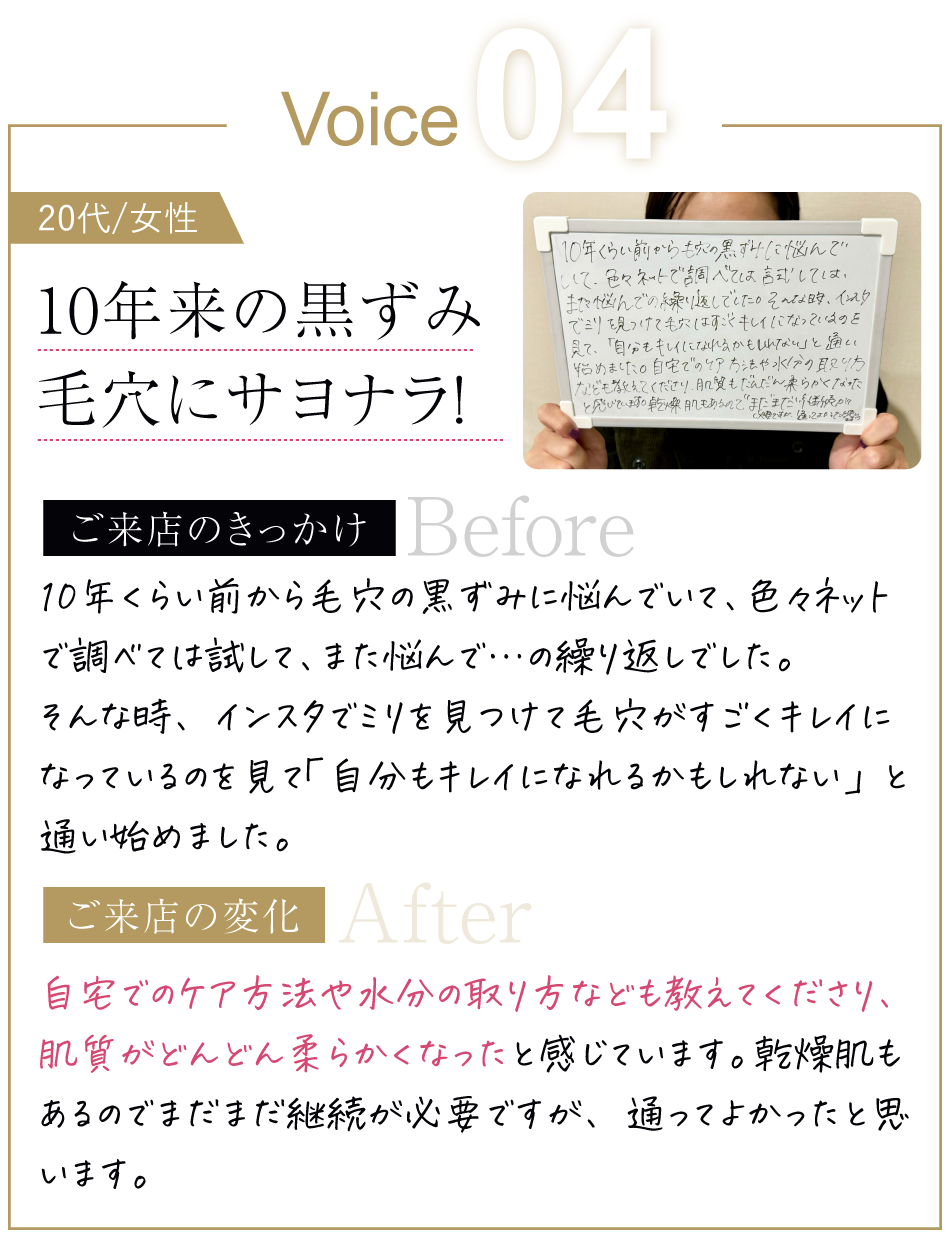 Voice 04
20代/女性
10年来の黒ずみ
毛穴にサヨナラ!
10年くらい前から毛穴の黒ずみに悩んで
いて、色々ネットで調べては試しては、
また悩んでの繰り返しでした。そんな時、インスタ
でミリを見つけて毛穴はすごくキレイになっているのを
見て、「自分もキレイになれるかもしれない」と通い
始めました。自宅でのケア方法や水分の取り方
なども教えてくださり、肌質もだんだん柔らかくなった
と感じています。乾燥肌もあるのでまだまだ継続が
必要ですが、通ってよかった
ご来店のきっかけ Before
10年くらい前から毛穴の黒ずみに悩んでいて、色々ネット
で調べては試して、また悩んで…の繰り返しでした。
そんな時、インスタでミリを見つけて毛穴がすごくキレイに
なっているのを見て「自分もキレイになれるかもしれない」と
通い始めました。
ご来店の変化 After
自宅でのケア方法や水分の取り方なども教えてくださり、
肌質がどんどん柔らかくなったと感じています。乾燥肌も
あるのでまだまだ継続が必要ですが、通ってよかったと思
います。